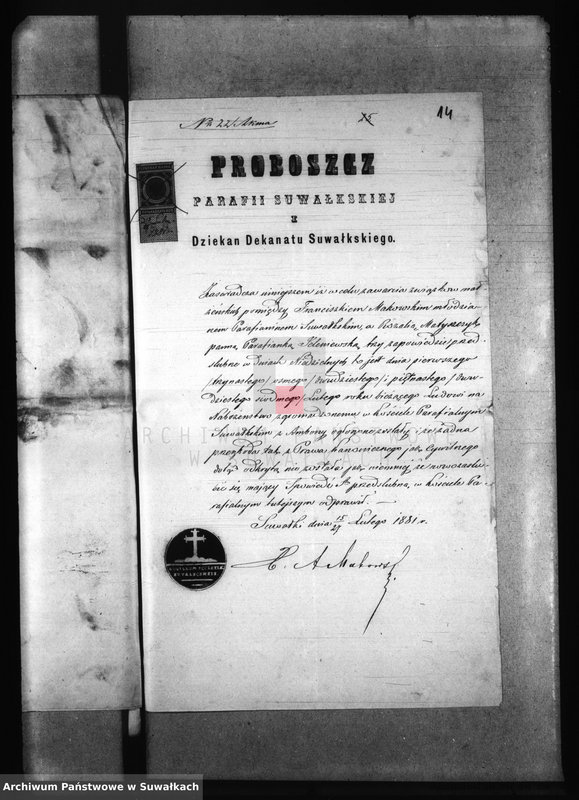 № 22/Akma 25 14
PROBOSZCZ
PARAFII SUWAŁKSKIEJ
I
Dziekan Dekanatu Suwałkskiego.
Zaświadcza niniejszem iż w celu zawarcia związków mał
żeńskich pomiędzy Franciszkiem Makowskim młodzia-
nem Parafianinem Suwałkskim, a Rozalią Matyszczyk
panną Parafianką Jeleniewską trzy zapowiedzie przed
ślubne w dniach Niedzielnych to jest dnia pierwszego
/trzynastego/ ósmego /dwudziestego/ i piętnastego /dwu-
dziestego siódmego/ Lutego roku bieżącego Ludowi na
Nabożeństwo zgromadzonemu w kościele Parafialnym
Suwałkskim z Ambony ogłoszone zostały i że żadna
przeszkoda tak z Prawa kanonicznego jak Cywilnego
dotąd odkrytą nie została jak niemniej że nowozaślu-
bić się mający Spowiedź Stą przedślubną w kościele Pa-
rafialnym tutejszym odprawił. —
Suwałki dnia 15/27 Lutego 1881 r.
X. A Makows
Archiwum Państwowe w Suwałkach